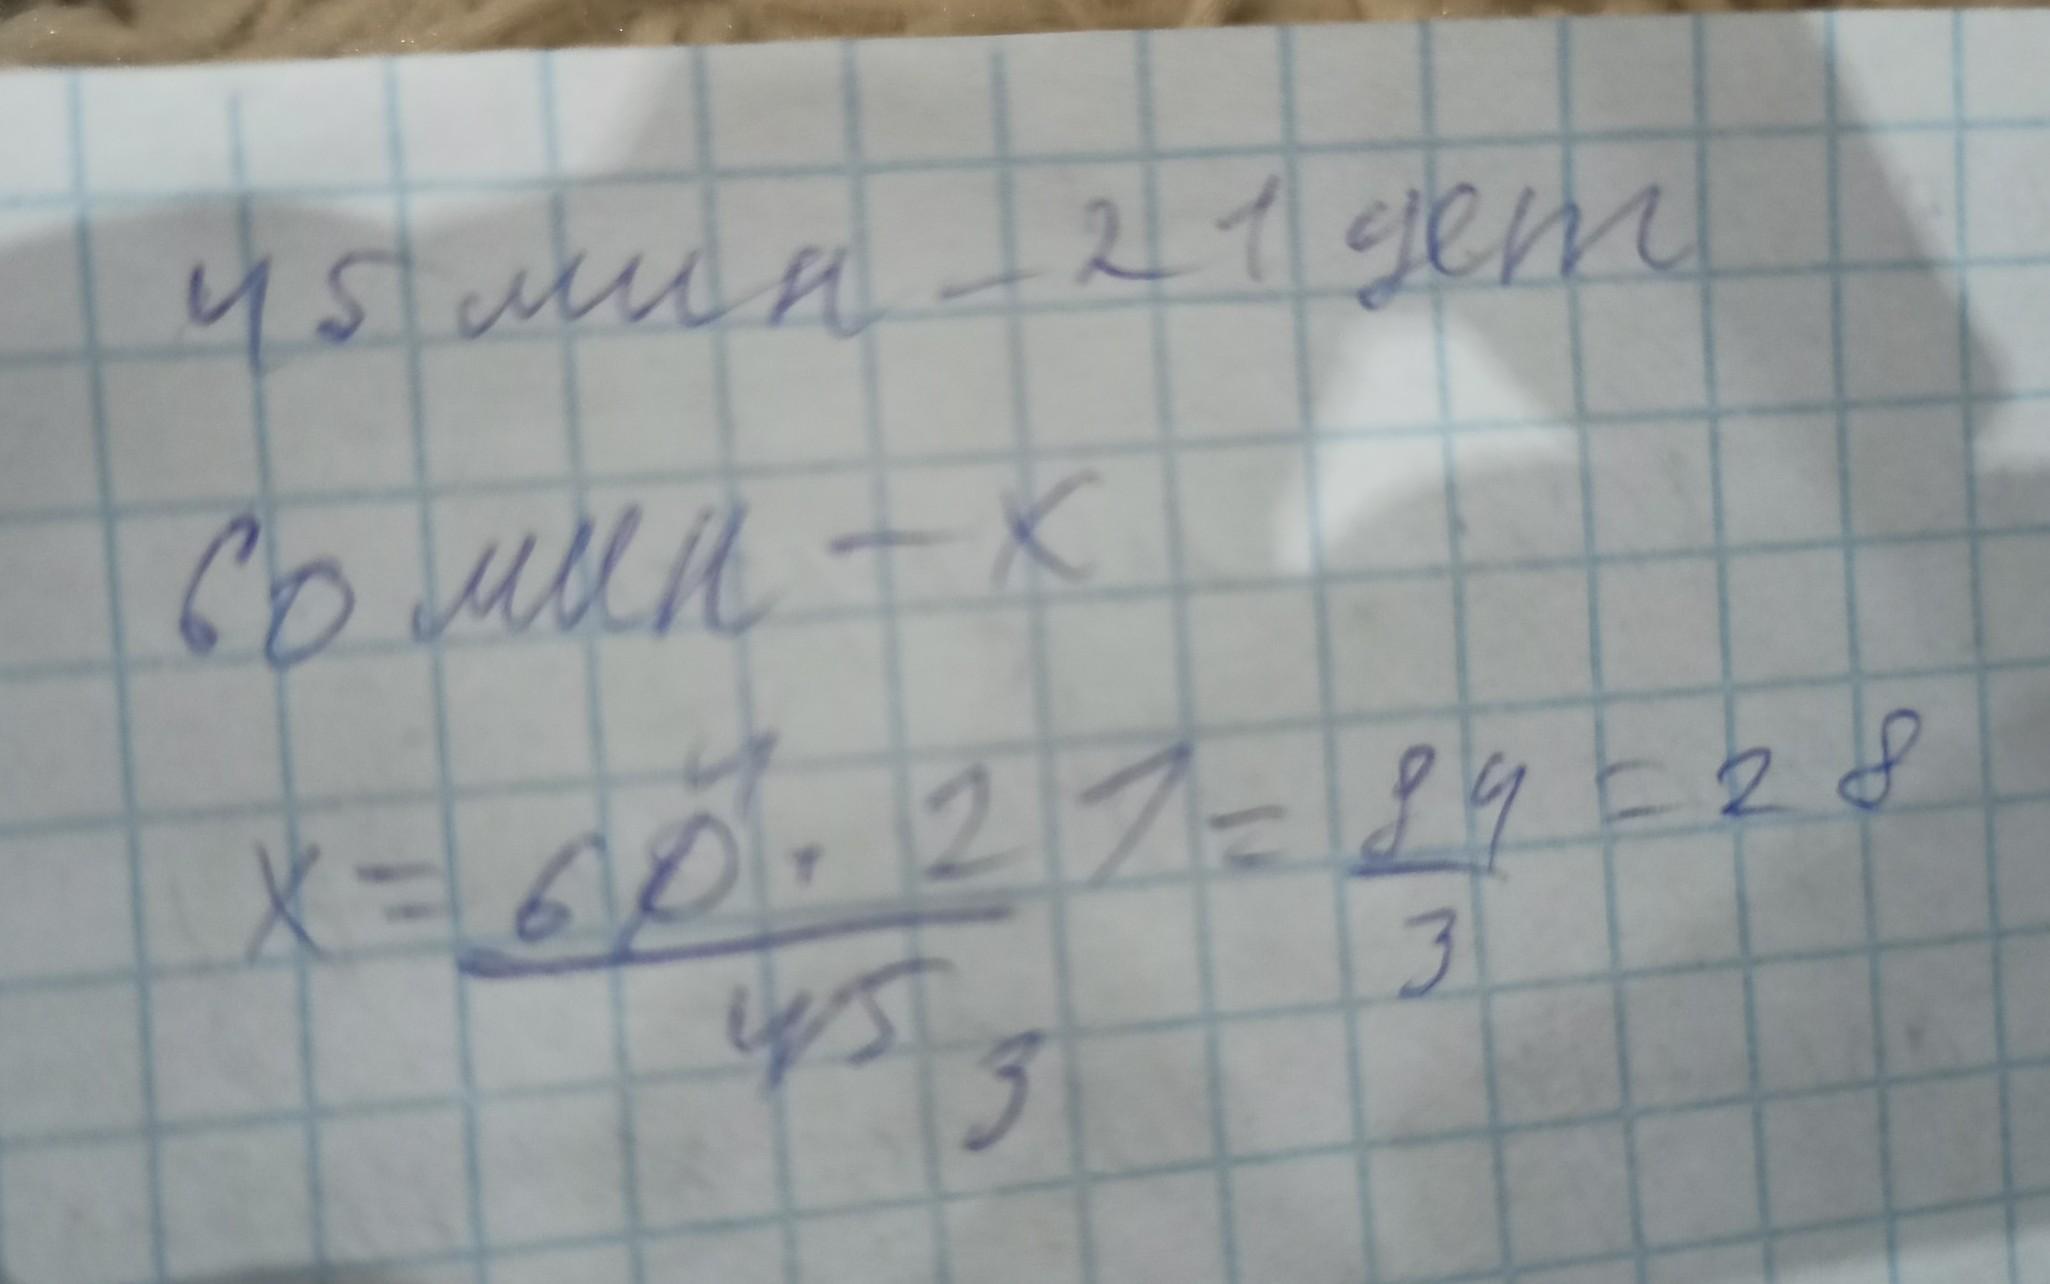 45 мин – 21 дет
60 мин – x
x = (60 4 · 21) / (45 3) = 84/3 = 28